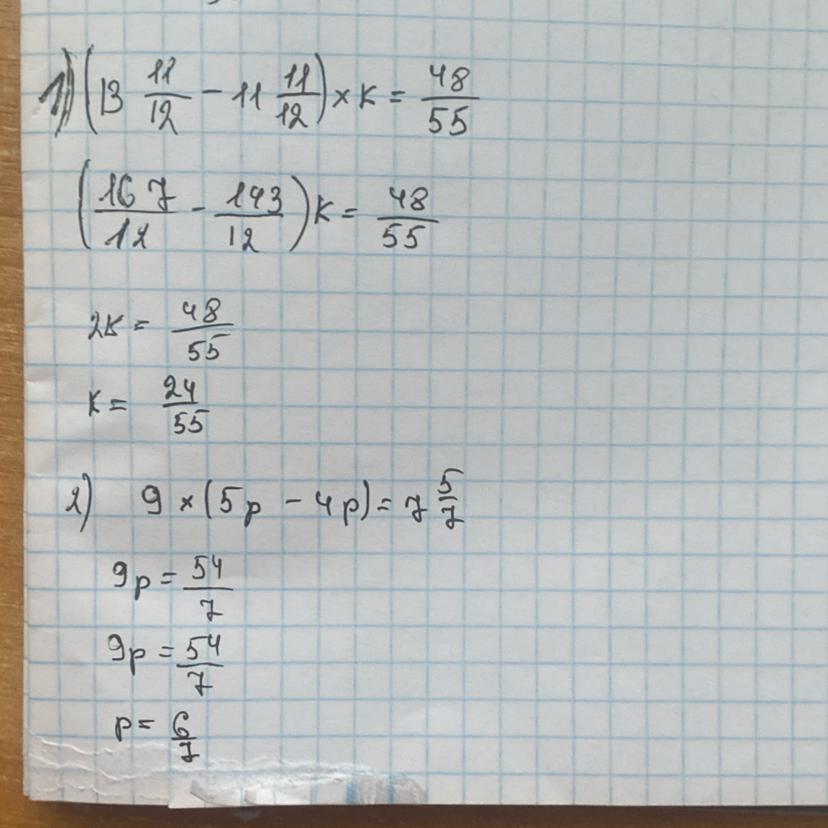 1) (13 11/12 - 11 11/12) × k = 48/55
(167/12 - 143/12) k = 48/55
2k = 48/55
k = 24/55
2) 9 × (5p - 4p) = 7 5/7
9p = 54/7
9p = 54/7
p = 6/7